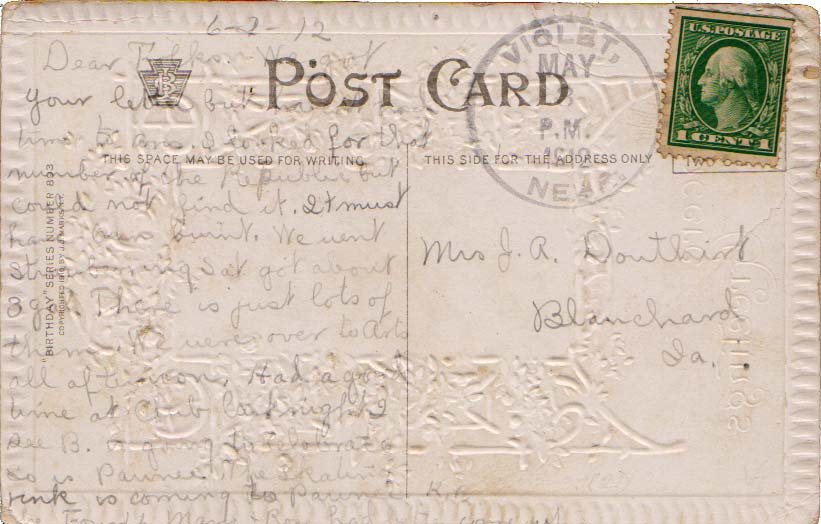 6-2-12
Dear Folks. We got
your letter but haven't had
time to ans. I looked for that
number of the Republic but
could not find it. It must
have been burnt. We went
strawberrying Sat got about
3 gal. There is just lots of
them. We were over to Arts
all afternoon. Had a good
time at Club last night. I
see B. is going to celebrate
so is Pawnee. The Skating
rink is coming to Pawnee
POST CARD
THIS SPACE MAY BE USED FOR WRITING
THIS SIDE FOR THE ADDRESS ONLY
"BIRTHDAY" SERIES NUMBER 893
COPYRIGHTED 1910 BY J.J. MARKS N.Y.
VIOLET,
MAY
3
P.M.
1912
NEBR.
U.S. POSTAGE
1 CENT 1
Mrs J. A. Douthirt
Blanchard
Ia.